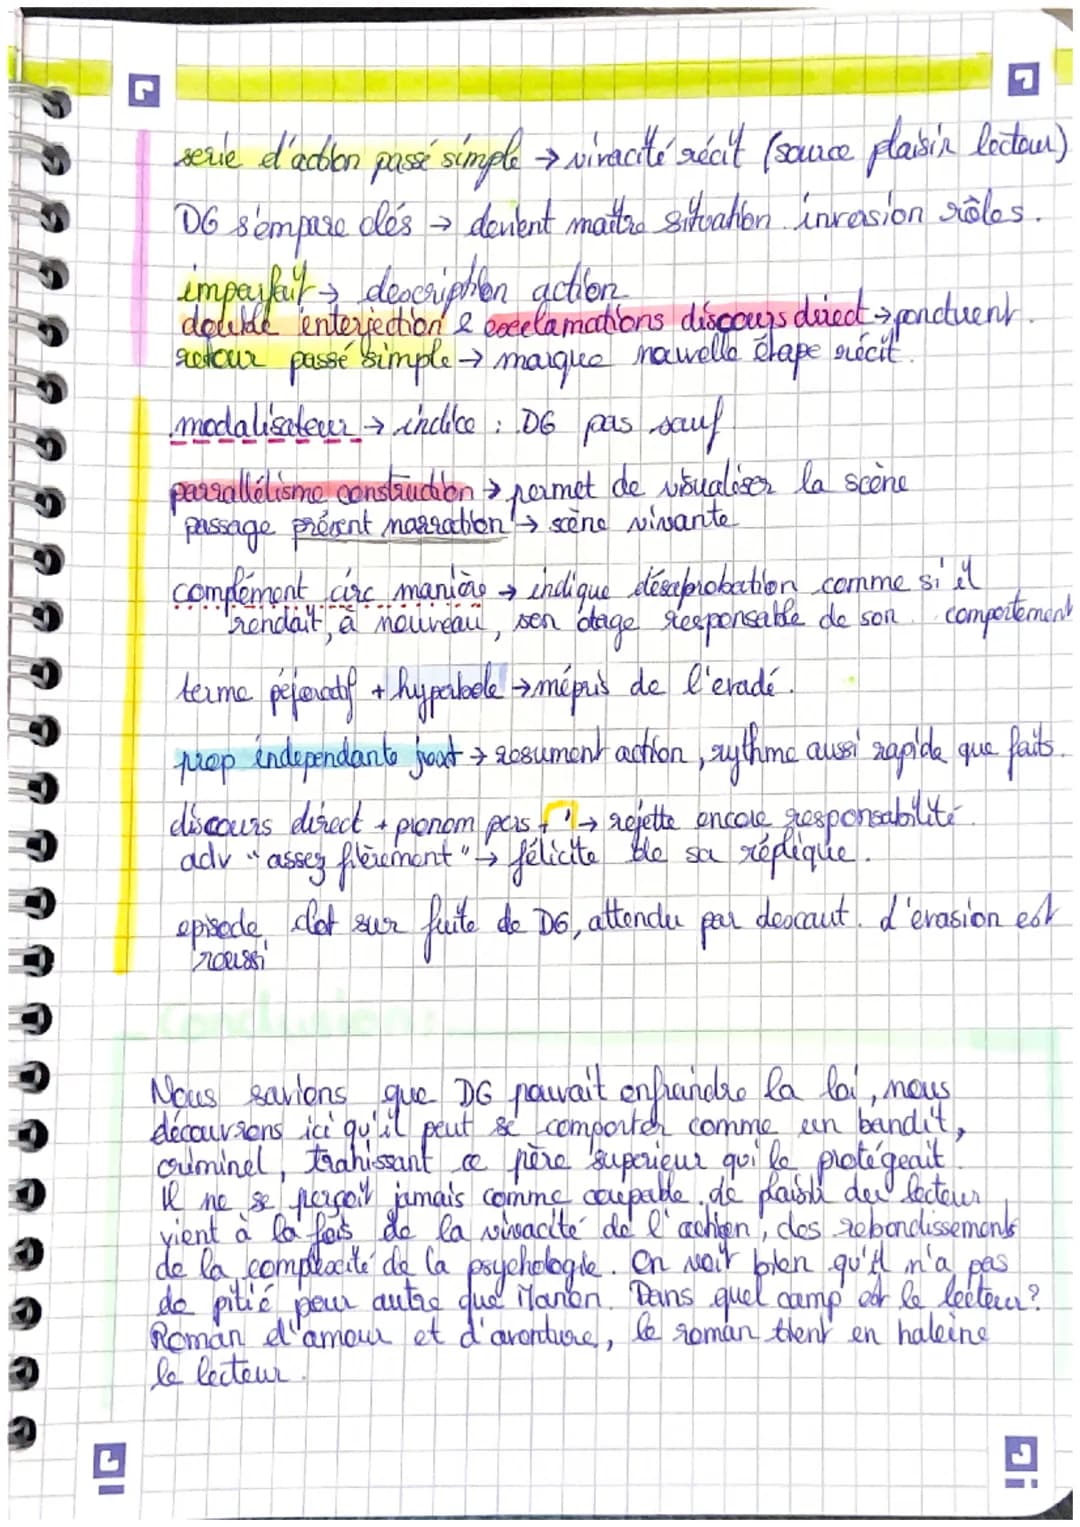 serie d'action passé simple → vivacité récit (source plaisir lecteur)
DG s'empare clés → devient maître situation. inversion rôles.
imparfait → description action
double interjection & exclamations discours direct → ponctuent.
retour passé simple → marque nouvelle étape récit.
modalisateur → indice : DG pas sauf
parrallélisme construction → permet de visualiser la scène
passage présent narration → scène vivante
complément circ manière → indique désaprobation comme si il
rendait, à nouveau, son otage responsable de son comportement
terme péjoratif + hyperbole → mépris de l'evadé.
prop indépendante juxt → resument action, rythme aussi rapide que faits.
discours direct + pronom pers + "" → rejette encore responsabilité
adv "assez fièrement" → félicite de sa réplique.
episode clot sur fuite de DG, attendu par descaut. L'evasion est
reussi
Conclusion:
Nous savions que DG pouvait enfraindre la loi, nous
découvrons ici qu'il peut se comporter comme un bandit,
criminel, trahissant ce père superieur qui le protégeait.
Il ne se perçoit jamais comme coupable. Le plaisir du lecteur
vient à la fois de la vivacité de l'action, des rebondissements
de la complexité de la psychologie. On voit bien qu'il n'a pas
de pitié pour autre que Manon. Dans quel camp est le lecteur?
Roman d'amour et d'aventure, le roman tient en haleine
le lecteur.